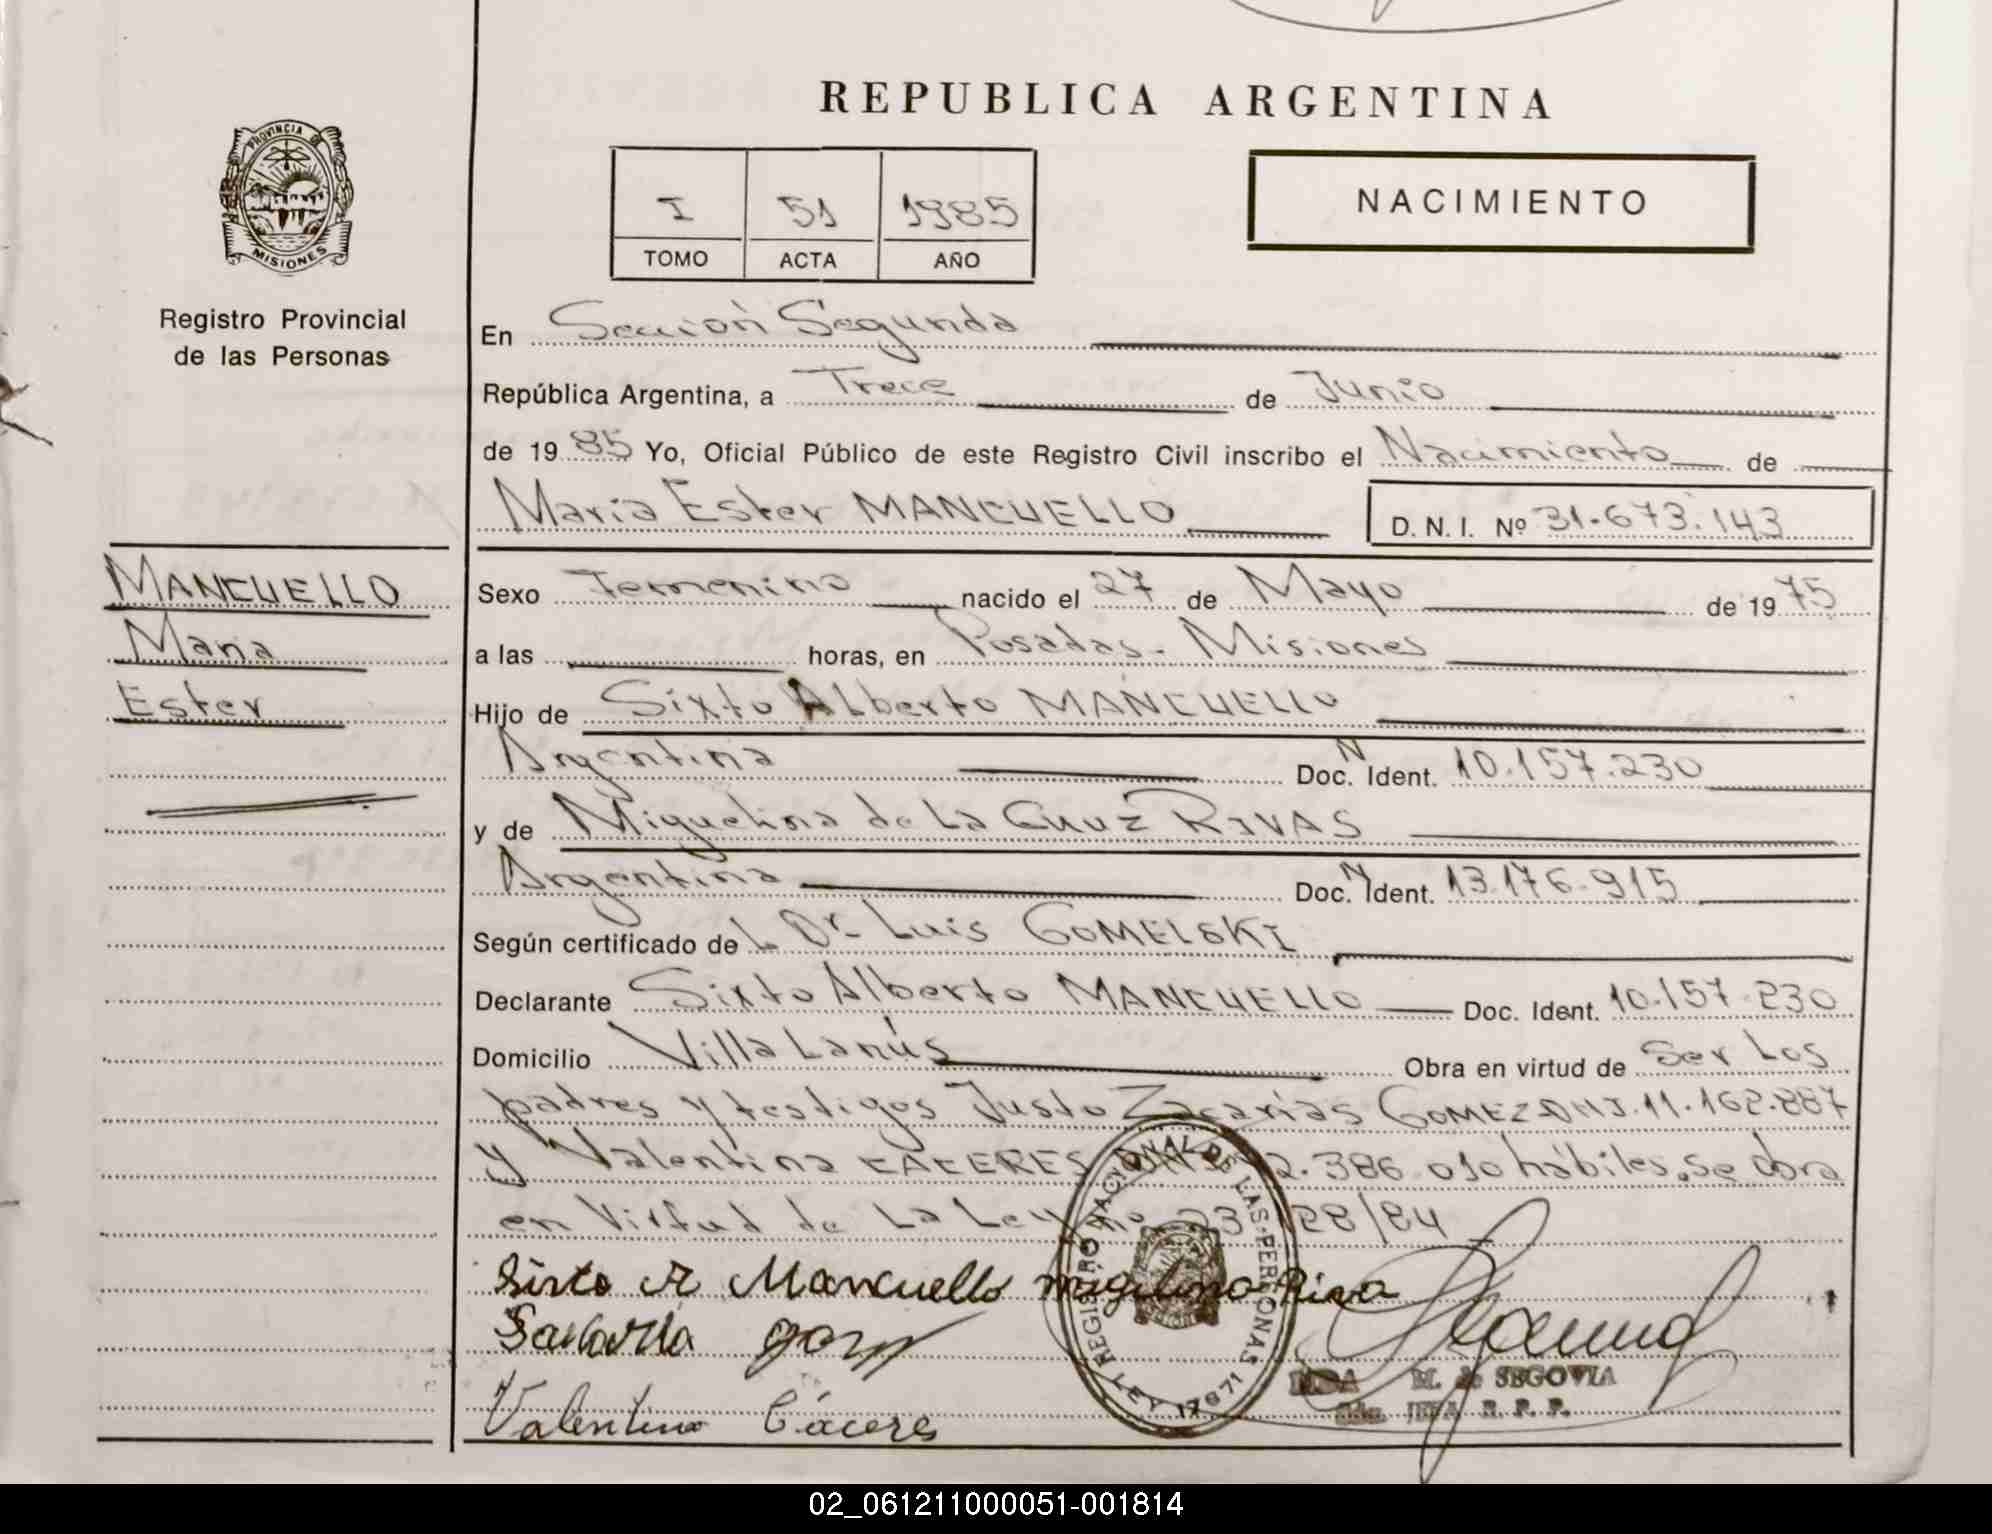 REPUBLICA ARGENTINA
PROVINCIA DE
MISIONES
I 51 1985
TOMO ACTA AÑO
NACIMIENTO
Registro Provincial
de las Personas
En Sección Segunda
República Argentina, a Trece de Junio
de 1985 Yo, Oficial Público de este Registro Civil inscribo el Nacimiento de
Maria Ester MANCUELLO D. N. I. Nº 31.673.143
MANCUELLO
Maria
Ester
Sexo Femenino nacido el 27 de Mayo de 1975
a las horas, en Posadas - Misiones
Hijo de Sixto Alberto MANCUELLO
Argentina Doc. N Ident. 10.157.230
y de Miguelina de La Cruz RIVAS
Argentina Doc. N Ident. 13.176.915
Según certificado de L Dr. Luis GOMELSKI
Declarante Sixto Alberto MANCUELLO Doc. Ident. 10.157.230
Domicilio Villa Lanús Obra en virtud de Ser Los
padres y testigos Justo Zacarías GOMEZ DNI. 11.162.887
y Valentina CACERES 2.386.010 hábiles. Se obra
en Virtud de La Ley no 23 128/84
Sixto A Mancuello miguelina Riva
Valentina Cáceres
REGISTRO NACIONAL DE LAS PERSONAS
LEY 17671
M. de SEGOVIA
JEFA R. P. P.
02_061211000051-001814